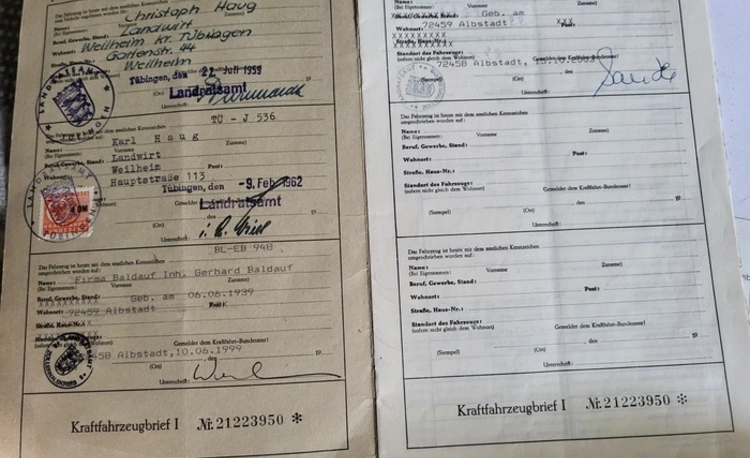 Christoph Haug
Landwirt
Weilheim Kr. Tübingen
Gartenstr. 44
Weilheim
Tübingen, den 27. Juli 1959
Landratsamt
Unterschrift:
TÜ - J 536
Das Fahrzeug ist heute mit dem amtlichen Kennzeichen
umgeschrieben worden auf:
Name: Karl Haug
(Bei Eigennamen: Vorname Zuname)
Beruf, Gewerbe, Stand: Landwirt
Wohnort: Weilheim Post:
Hauptstraße 113
Tübingen, den -9. Feb. 1962
Landratsamt
(Ort)
Unterschrift:
BL-EB 948
Das Fahrzeug ist heute mit dem amtlichen Kennzeichen
umgeschrieben worden auf:
Name: Firma Baldauf Inh. Gerhard Baldauf
(Bei Eigennamen: Vorname Zuname)
Beruf, Gewerbe, Stand: Geb. am 06.06.1939
XXXXXXXXX
Wohnort: 72459 Albstadt
Straße, Haus-Nr.:
Gemeldet dem Kraftfahrt-Bundesamt:
458 Albstadt, 10.06.1999
(Ort) , den 19
Unterschrift:
Kraftfahrzeugbrief I Nr. 21223950 *
(Bei Eigennamen: Vorname Zuname)
Beruf, Gewerbe, Stand: Geb. am
Wohnort: 72459 Albstadt XXX
XXXXXXXXX
Straße, Haus-Nr.:
Standort des Fahrzeugs:
(sofern nicht gleich dem Wohnort)
72458 Albstadt,
(Stempel) (Ort) , den
Unterschrift:
Das Fahrzeug ist heute mit dem amtlichen Kennzeichen
umgeschrieben worden auf:
Name:
(Bei Eigennamen: Vorname Zuname)
Beruf, Gewerbe, Stand:
Wohnort: Post:
Straße, Haus-Nr.:
Standort des Fahrzeugs: Gemeldet dem Kraftfahrt-Bundesamt:
(sofern nicht gleich dem Wohnort)
, den 19
(Stempel) (Ort)
Unterschrift:
Das Fahrzeug ist heute mit dem amtlichen Kennzeichen
umgeschrieben worden auf:
Name:
(Bei Eigennamen: Vorname Zuname)
Beruf, Gewerbe, Stand:
Wohnort: Post:
Straße, Haus-Nr.:
Standort des Fahrzeugs: Gemeldet dem Kraftfahrt-Bundesamt:
(sofern nicht gleich dem Wohnort)
, den 19
(Stempel) (Ort)
Unterschrift:
Kraftfahrzeugbrief I Nr. 21223950 *